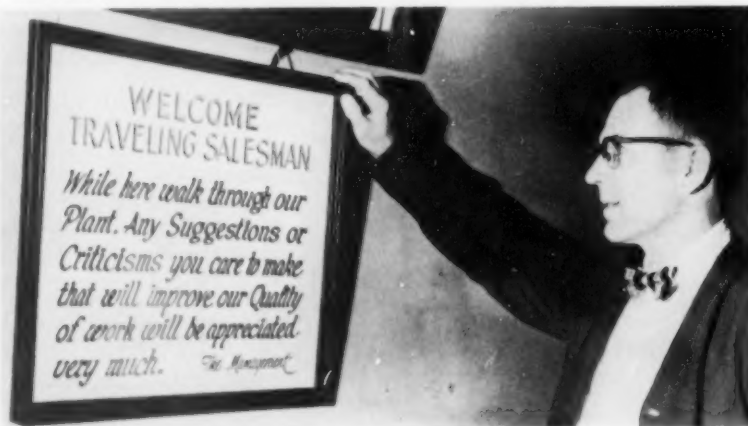 WELCOME
TRAVELING SALESMAN
While here walk through our
Plant. Any Suggestions or
Criticisms you care to make
that will improve our Quality
of work will be appreciated
very much. The Management